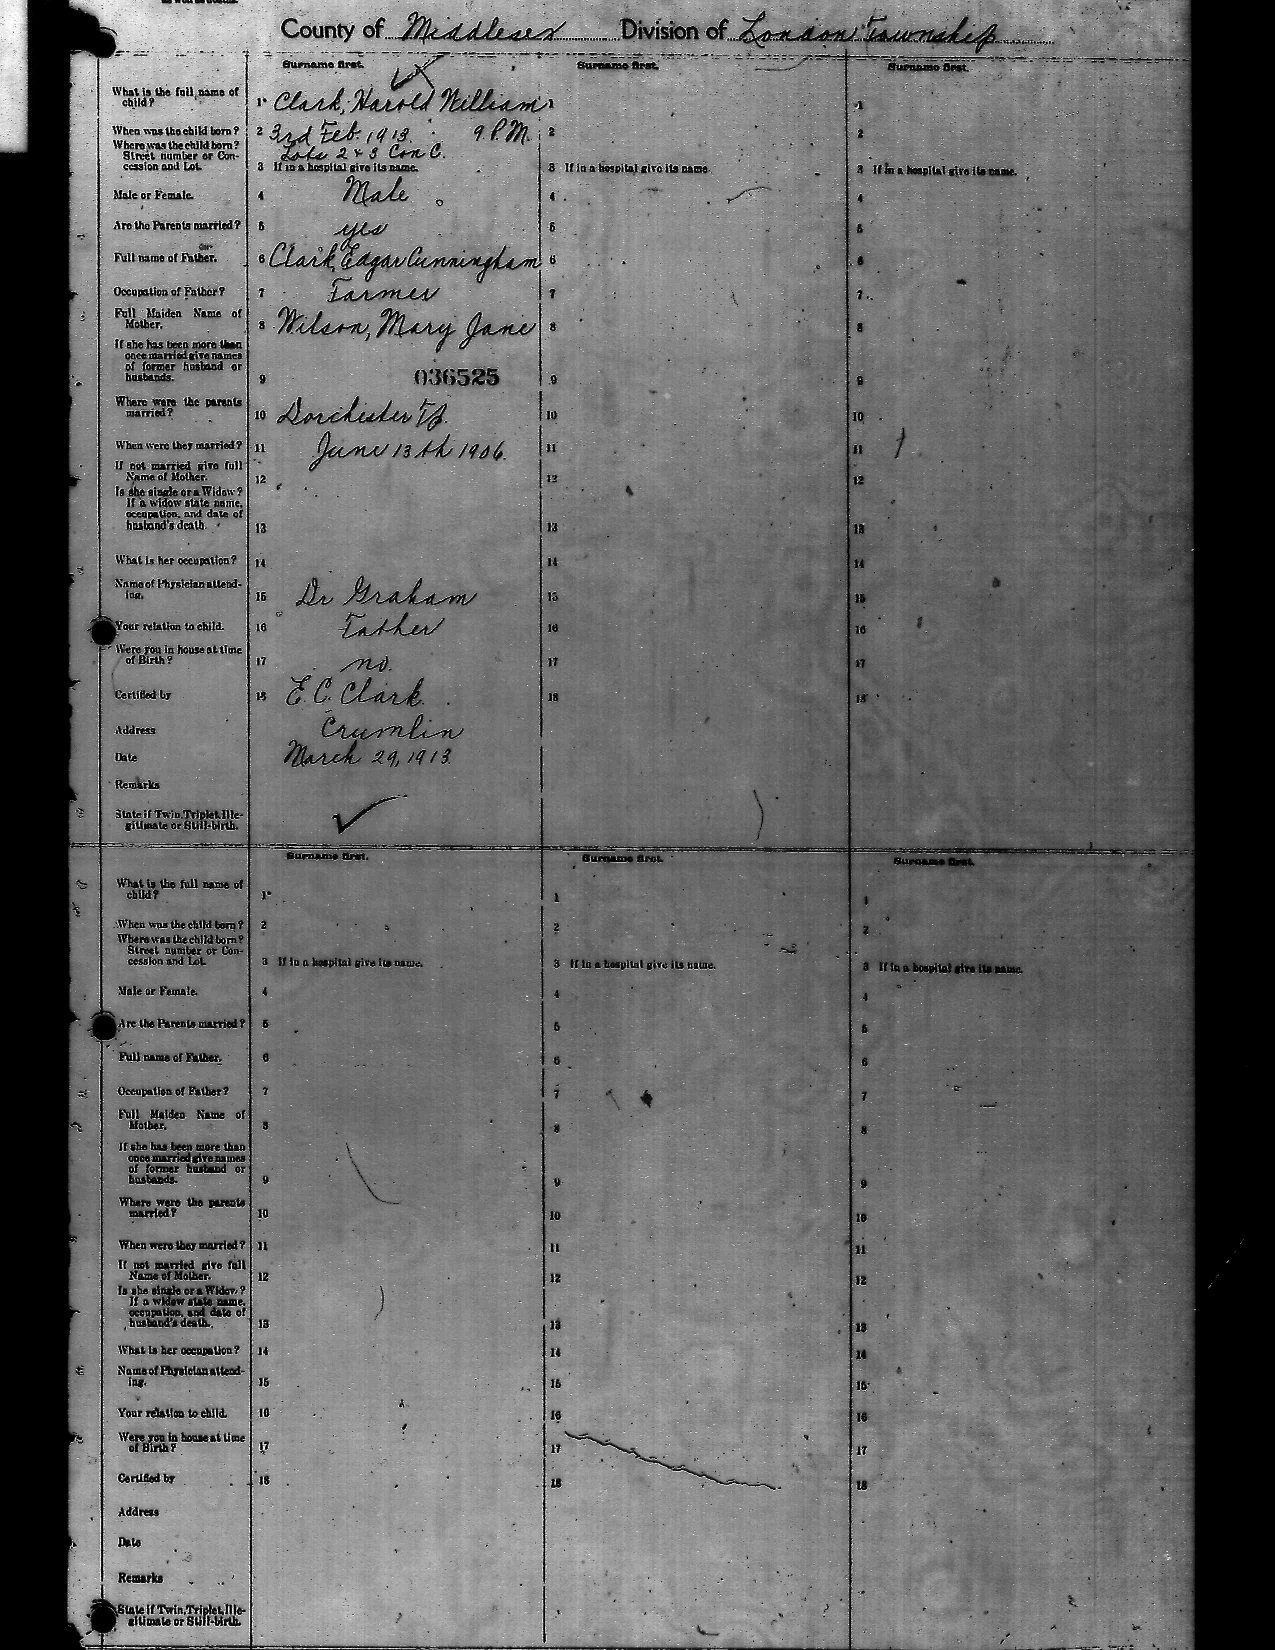 County of Middlesex Division of London Township
Surname first. Surname first. Surname first.
What is the full name of
child? 1 Clark, Harold William 1 1
When was the child born? 2 3rd Feb. 1913. 9 P.M. 2 2
Where was the child born?
Street number or Con- Lots 2 & 3 Con C.
cession and Lot. 3 If in a hospital give its name. 3 If in a hospital give its name. 3 If in a hospital give its name.
Male or Female. 4 Male 4 4
Are the Parents married? 5 yes 5 5
Full name of Father. 6 Clark, Edgar Cunningham 6 6
Occupation of Father? 7 Farmer 7 7
Full Maiden Name of
Mother. 8 Wilson, Mary Jane 8 8
If she has been more than
once married give names
of former husband or
husbands. 9 036525 9 9
Where were the parents
married? 10 Dorchester Tp. 10 10
When were they married? 11 June 13th 1906. 11 11
If not married give full
Name of Mother. 12 12 12
Is she single or a Widow?
If a widow state name,
occupation, and date of
husband's death. 13 13 13
What is her occupation? 14 14 14
Name of Physician attend-
ing. 15 Dr Graham 15 15
Your relation to child. 16 Father 16 16
Were you in house at time
of Birth? 17 no. 17 17
Certified by 18 E. C. Clark 18 18
Address Crumlin
Date March 29, 1913.
Remarks
State if Twin, Triplet, Ille-
gitimate or Still-birth.
Surname first. Surname first. Surname first.
What is the full name of
child? 1 1 1
When was the child born? 2 2 2
Where was the child born?
Street number or Con-
cession and Lot. 3 If in a hospital give its name. 3 If in a hospital give its name. 3 If in a hospital give its name.
Male or Female. 4 4 4
Are the Parents married? 5 5 5
Full name of Father. 6 6 6
Occupation of Father? 7 7 7
Full Maiden Name of
Mother. 8 8 8
If she has been more than
once married give names
of former husband or
husbands. 9 9 9
Where were the parents
married? 10 10 10
When were they married? 11 11 11
If not married give full
Name of Mother. 12 12 12
Is she single or a Widow?
If a widow state name,
occupation, and date of
husband's death. 13 13 13
What is her occupation? 14 14 14
Name of Physician attend-
ing. 15 15 15
Your relation to child. 16 16 16
Were you in house at time
of Birth? 17 17 17
Certified by 18 18 18
Address
Date
Remarks
State if Twin, Triplet, Ille-
gitimate or Still-birth.